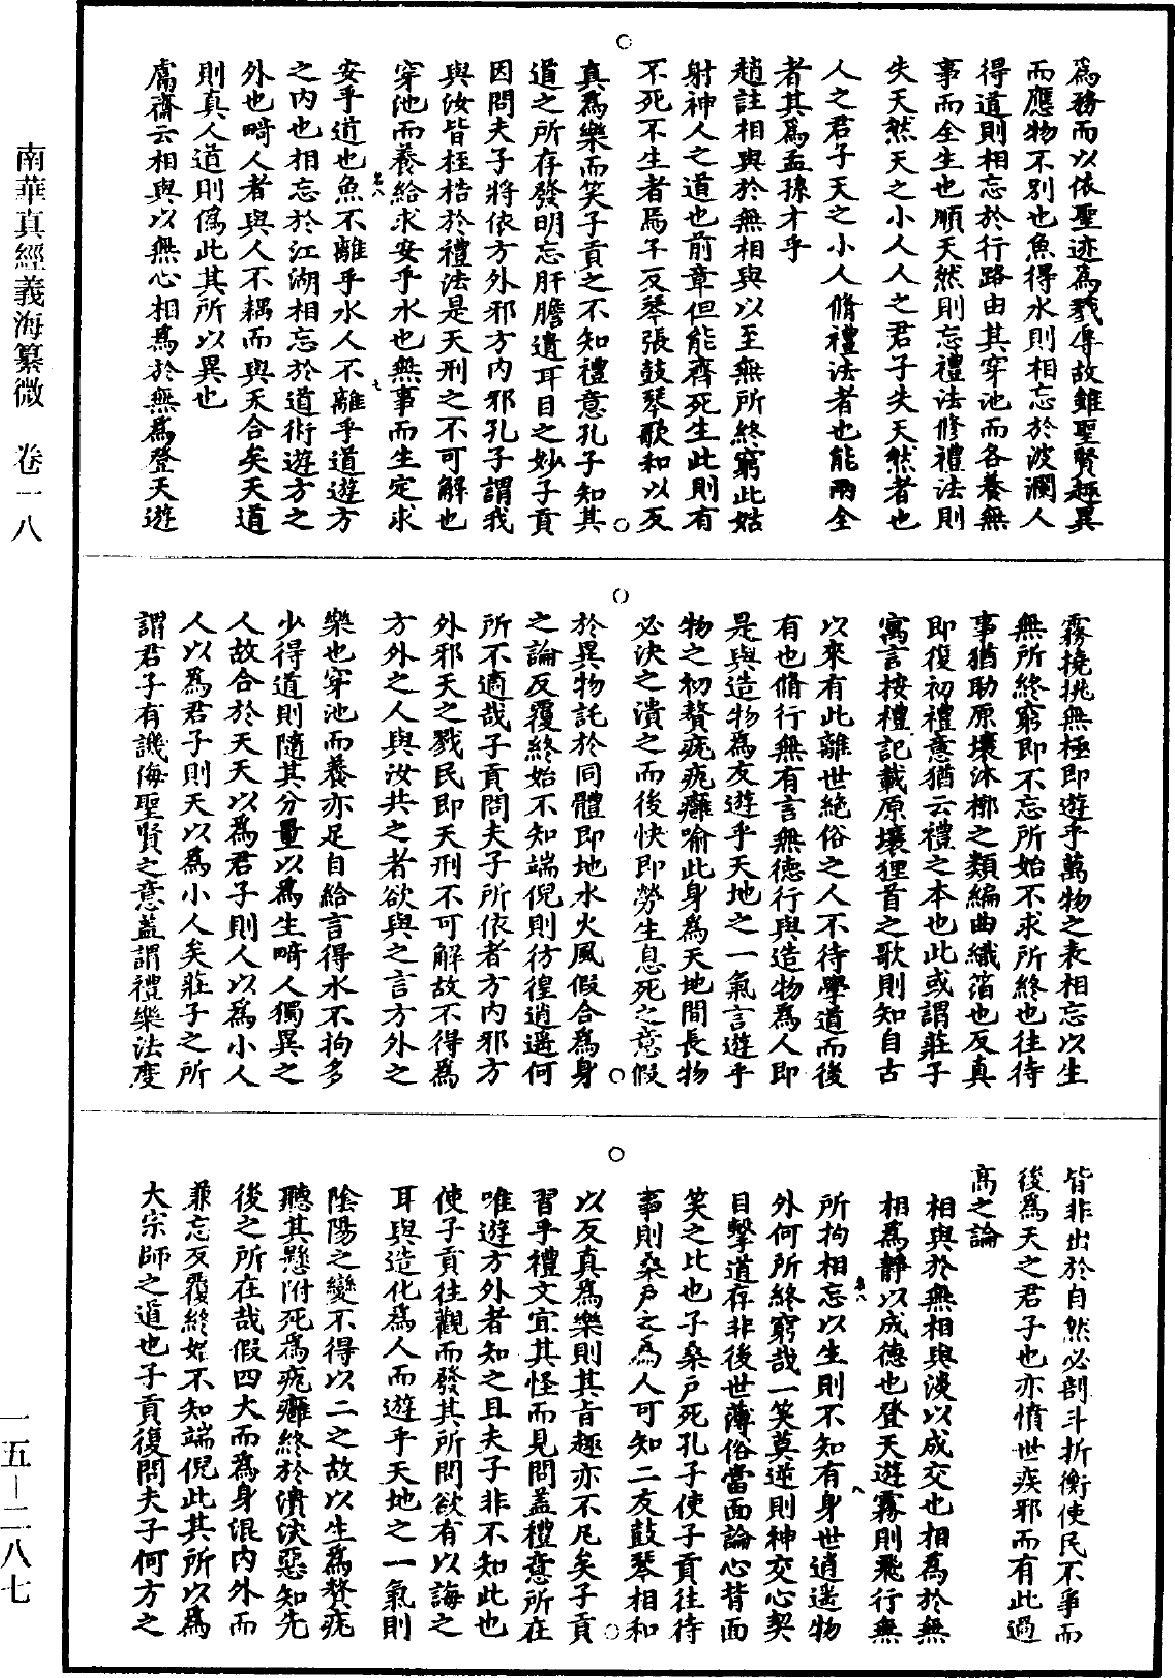 為務而以依聖迹為戮辱故雖聖賢趣異
而應物不別也魚得水則相忘於波瀾人
得道則相忘於行路由其穿池而各養無
事而全生也順天然則忘禮法修禮法則
失天然天之小人人之君子失天然者也
人之君子天之小人脩禮法者也能兩全
者其為孟孫才乎
趙註相與於無相與以至無所終窮此姑
射神人之道也前章但能齊死生此則有
不死不生者焉子反琴張鼓琴歌和以反
真為樂而笑子貢之不知禮意孔子知其
道之所存發明忘肝膽遺耳目之妙子貢
因問夫子將依方外邪方內邪孔子謂我
與汝皆桎梏於禮法是天刑之不可解也
穿池而養給求安乎水也無事而生定求
安乎道也魚不離乎水人不離乎道遊方
之內也相忘於江湖相忘於道術遊方之
外也畸人者與人不耦而與天合矣天道
則真人道則偽此其所以異也
鬳齋云相與以無心相為於無為登天遊
霧撓挑無極即遊乎萬物之表相忘以生
無所終窮即不忘所始不求所終也往待
事猶助原壤沐槨之類編曲織箔也反真
即復初禮意猶云禮之本也此或謂莊子
寓言按禮記載原壤狸首之歌則知自古
以來有此離世絕俗之人不待學道而後
有也脩行無有言無德行與造物為人即
是與造物為友遊乎天地之一氣言遊乎
物之初贅疣疣癰喻此身為天地間長物
必決之潰之而後快即勞生息死之意假
於異物託於同體即地水火風假合為身
之論反覆終始不知端倪則彷徨逍遥何
所不適哉子貢問夫子所依者方內邪方
外邪天之戮民即天刑不可解故不得為
方外之人與汝共之者欲與之言方外之
樂也穿池而養亦足自給言得水不拘多
少得道則隨其分量以為生畸人獨異之
人故合於天天以為君子則人以為小人
人以為君子則天以為小人矣莊子之所
謂君子有譏侮聖賢之意蓋謂禮樂法度
皆非出於自然必剖斗折衡使民不爭而
後為天之君子也亦憤世疾邪而有此過
高之論
相與於無相與淡以成交也相為於無
相為靜以成德也登天遊霧則飛行無
所拘相忘以生則不知有身世逍遙物
外何所終窮哉一笑莫逆則神交心契
目擊道存非後世薄俗當面論心背面
笑之比也子桑戶死孔子使子貢往待
事則桑戶之為人可知二友鼓琴相和
以反真為樂則其旨趣亦不凡矣子貢
習乎禮文宜其怪而見問蓋禮意所在
唯遊方外者知之且夫子非不知此也
使子貢往觀而發其所問欲有以誨之
耳與造化為人而遊乎天地之一氣則
陰陽之變不得以二之故以生為贅疣
聽其懸附死為疣癰終於潰決惡知先
後之所在哉假四大而為身混內外而
兼忘反覆終始不知端倪此其所以為
大宗師之道也子貢復問夫子何方之
南華真經義海纂微　卷一八
一五—二八七